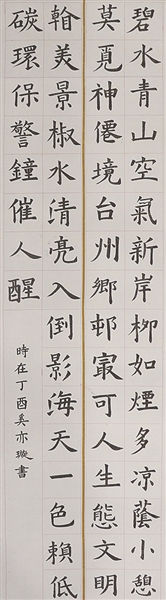 碧水青山空氣新岸柳如煙多凉蔭小憩
莫覓神僊境台州鄉邨㝡可人生態文明
翰美景椒水清亮入倒影海天一色賴低
碳環保警鐘催人醒
時在丁酉奚亦璇書